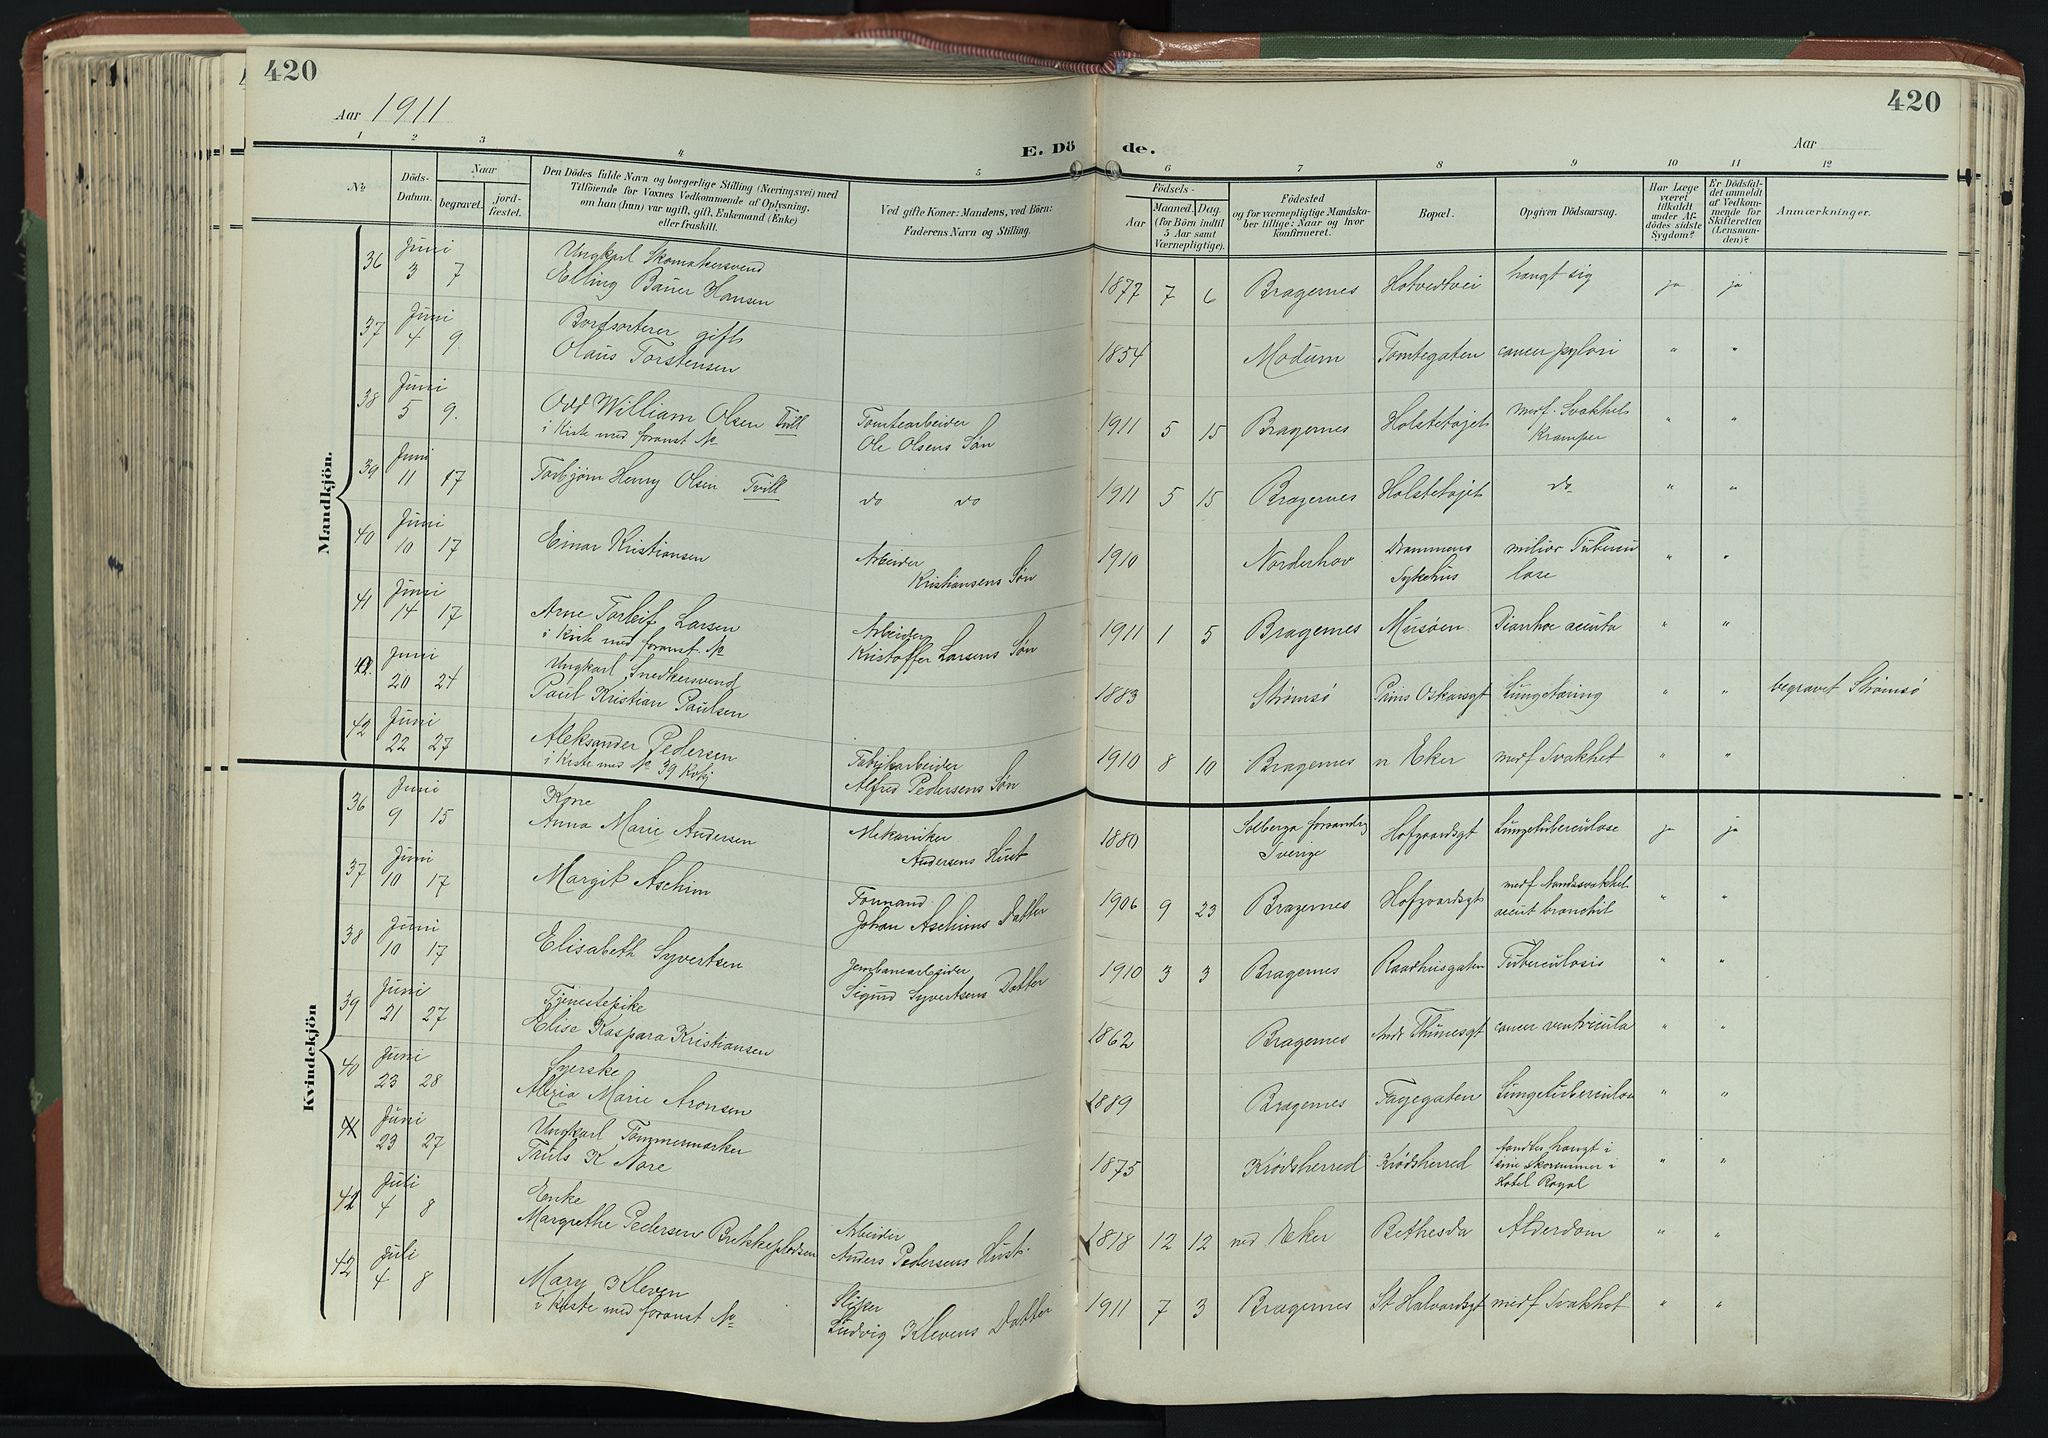 420
420
Aar 1911
Aar
E. Dö
de.
1 2 3 4 5 6 7 8 9 10 11 12
No
Döds-
Datum.
Naar
begravet.
jord-
fæstet.
Den Dödes fulde Navn og borgerlige Stilling (Næringsvei) med
Tilföiende for Voxnes Vedkommende af Oplysning,
om han (hun) var ugift, gift, Enkemand (Enke)
eller fraskilt.
Ved gifte Koner: Mandens, ved Börn:
Faderens Navn og Stilling.
Födsels-
Aar
Maaned. Dag.
(for Börn indtil
5 Aar samt
Værnepligtige).
Födested
og for værnepligtige Mandska-
ber tillige: Naar og hvor
konfirmeret.
Bopæl.
Opgiven Dödsaarsag.
Har Læge
været
tilkaldt
under Af-
dödes sidste
Sygdom?
Er Dödsfal-
det anmeldt
af Vedkom-
mende for
Skifteretten
(Lensman-
den)?
Anmærkninger.
Mandkjön.
36 Juni 3 7 Ungkarl Skomakersvend
Elling Bauer Hansen 1877 7 6 Bragernes Hotvedtvei hængt sig ja ja
37 Juni 4 9. Bordsorterer gift
Olaus Torstensen 1854 Modum Tomtegaten cancer pylori " "
38 Juni 5 9. Odd William Olsen Tvill
i Kiste med foranst No
Tomtearbeider
Ole Olsens Søn 1911 5 15 Bragernes Holstetøjet medf. Svakhet
Kramper " "
39 Juni 11 17 Torbjørn Henry Olsen Tvill do do 1911 5 15 Bragernes Holstetøjet do " "
40 Juni 10 17 Einar Kristiansen Arbeider
Kristiansens Søn 1910 Norderhov Drammens
Sykehus miliær Tubercu
lose " "
41 Juni 14 17 Arne Torleif Larsen
i Kiste med foranst. No
Arbeider
Kristoffer Larsens Søn 1911 1 5 Bragernes Musøen Diarrhoe acuta " "
42. Juni 20 24 Ungkarl, Snedkersvend
Paul Kristian Paulsen 1883 Strømsø Prins Oskarsgt Lungetæring " " begravet Strømsø
42 Juni 22 27 Aleksander Pedersen
i Kiste med No 39 Kvkj
Fabrikarbeider
Alfred Pedersens Søn 1910 8 10 Bragernes n Eker medf Svakhet " "
Kvindekjön
36 Juni 9 15 Kone
Anna Marie Andersen Mekaniker
Andersens Hust 1880 Solberga forsamling
Sverige Hofgaardsgt Lungetuberculose ja ja
37 Juni 10 17 Margit Aschim Formand
Johan Aschims Datter 1906 9 23 Bragernes Hofgaardsgt medf Aandssvakhet
accut bronchit " "
38 Juni 10 17 Elisabeth Syvertsen Jernbanearbeider
Sigurd Syvertsens Datter 1910 3 3 Bragernes Raadhusgaten Tuberculosis " "
39 Juni 21 27 Tjenestepike
Elise Kaspara Kristiansen 1862 Bragernes And. Thunesgt cancer ventricula " "
40 Juni 23 28 Syerske
Alexia Marie Aronsen 1889 Bragernes Fagegaten Lungetuberculose " "
41 Juni 23 27 Ungkarl Tømmermerker
Truls K Nore 1875 Krødsherred Krødsherred fandtes hængt i
sine Skoremmer i
Hotel Royal " "
42 Juli 4 8 Enke
Margrethe Pedersen Brekkepladsen Arbeider
Anders Pedersens Hust. 1818 12 12 ned Eker Bethesda Alderdom " "
42 Juli 4 8 Mary Kleven
i Kiste med foranst No
Sliper
Ludvig Klevens Datter 1911 7 3 Bragernes St Halvardsgt medf Svakhet " "